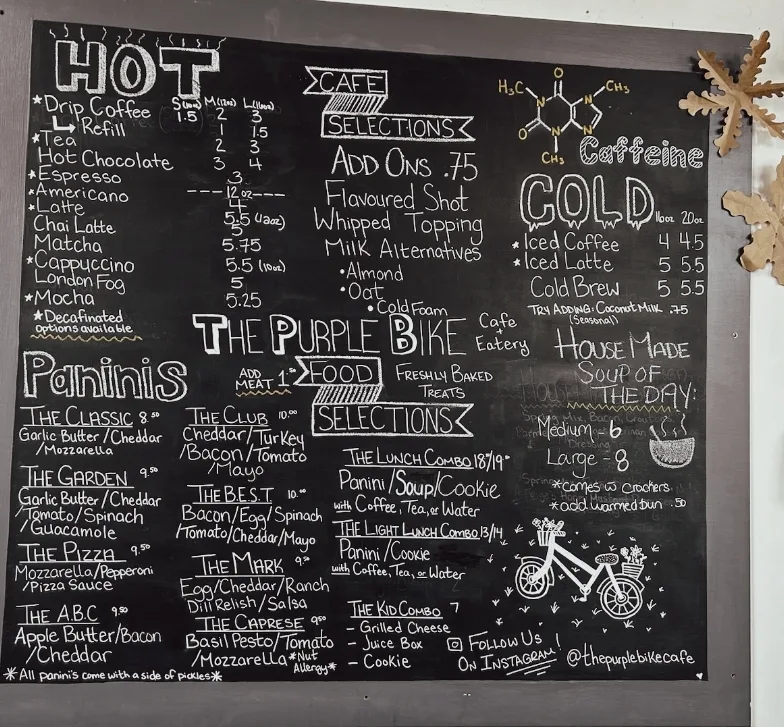 HOT
S(10oz) M(12oz) L(16oz)
*Drip Coffee 1.5 2 3
Refill 1 1.5
*Tea 2 3
Hot Chocolate 3 4
*Espresso 3
*Americano ---12oz---
4
*Latte 5.5 (12oz)
Chai Latte 5
Matcha 5.75
*Cappuccino 5.5 (10oz)
London Fog 5
*Mocha 5.25
*Decafinated
options available
CAFE
SELECTIONS
ADD ONS .75
Flavoured Shot
Whipped Topping
Milk Alternatives
•Almond
•Oat
•Cold Foam
O
H₃C N N CH₃
O N N
CH₃
Caffeine
COLD
16oz 20oz
*Iced Coffee 4 4.5
*Iced Latte 5 5.5
Cold Brew 5 5.5
TRY ADDING: Coconut Milk .75
(Seasonal)
THE PURPLE BIKE Cafe
+
Eatery
HOUSE MADE
SOUP OF
THE DAY:
Medium - 6
Large - 8
*comes w crackers
*add warmed bun .50
Paninis
ADD
MEAT 1.⁵⁰
FOOD
SELECTIONS
FRESHLY BAKED
TREATS
THE CLASSIC 8.50
Garlic Butter/Cheddar
/Mozzarella
THE GARDEN 9.50
Garlic Butter/Cheddar
/Tomato/Spinach
/Guacamole
THE PIZZA 9.50
Mozzarella/Pepperoni
/Pizza Sauce
THE A.B.C 9.50
Apple Butter/Bacon
/Cheddar
*All panini's come with a side of pickles*
THE CLUB 10.00
Cheddar/Turkey
/Bacon/Tomato
/Mayo
THE B.E.S.T 10.00
Bacon/Egg/Spinach
/Tomato/Cheddar/Mayo
THE MARK 9.50
Egg/Cheddar/Ranch
Dill Relish/Salsa
THE CAPRESE 9.50
Basil Pesto/Tomato
/Mozzarella *Nut
Allergy*
THE LUNCH COMBO 18/19
Panini/Soup/Cookie
with Coffee, Tea, or Water
THE LIGHT LUNCH COMBO 13/14
Panini/Cookie
with Coffee, Tea, or Water
THE KID COMBO 7
- Grilled Cheese
- Juice Box
- Cookie
FOLLOW US
ON INSTAGRAM! @thepurplebikecafe